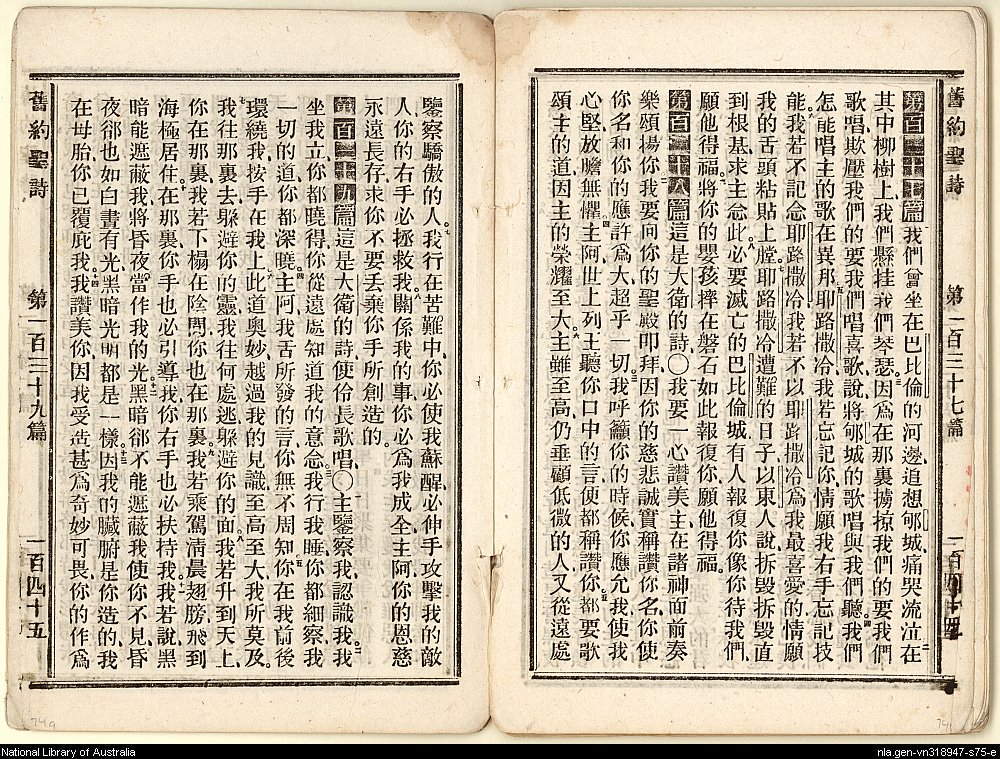 舊約聖詩 第一百三十七篇
第百三十七篇我們曾坐在巴比倫的河邊追想郇城痛哭流泣在
其中柳樹上我們懸挂我們琴瑟因爲在那裏擄掠我們的要我們
歌唱欺壓我們的要我們唱喜歌說將郇城的歌唱與我們聽我們
怎能唱主的歌在異邦耶路撒冷我若忘記你情願我右手忘記技
能我若不記念耶路撒冷我若不以耶路撒冷爲我最喜愛的情願
我的舌頭粘貼上膛耶路撒冷遭難的日子以東人說拆毀拆毀直
到根基求主念此必要滅亡的巴比倫城有人報復你像你待我們
願他得福將你的嬰孩摔在磐石如此報復你願他得福
第百三十八篇這是大衛的詩〇我要一心讚美主在諸神面前奏
樂頌揚你我要向你的聖殿叩拜因你的慈悲誠實稱讚你名你使
你名和你的應許爲大超乎一切我呼籲你的時候你應允我使我
心堅放膽無懼主阿世上列王聽你口中的言便都稱讚你都要歌
頌主的道因主的榮耀至大主雖至高仍垂顧低微的人又從遠處
一百四十四
鑒察驕傲的人我行在苦難中你必使我蘇醒必伸手攻擊我的敵
人你的右手必拯救我關係我的事你必爲我成全主阿你的恩慈
永遠長存求你不要丟棄你手所創造的
第百三十九篇這是大衛的詩使伶長歌唱〇主鑒察我認識我我
坐我立你都曉得你從遠處知道我的意念我行我睡你都細察我
一切的道你都深曉主阿我舌所發的言你無不周知你在我前後
環繞我按手在我上此道奧妙越過我的見識至高至大我所莫及
我往那裏去躲避你的靈我往何處逃躲避你的面我若升到天上
你在那裏我若下榻在陰間你也在那裏我若乘駕淸晨翅膀飛到
海極居住在那裏你手也必引導我你右手也必扶持我我若說黑
暗能遮蔽我將昏夜當作我的光黑暗郤不能遮蔽我使你不見昏
夜郤也如白晝有光黑暗光明都是一樣因我的臟腑是你造的我
在母胎你已覆庇我我讚美你因我受造甚爲奇妙可畏你的作爲
舊約聖詩 第一百三十九篇 一百四十五
74a
National Library of Australia
nla.gen-vn318947-s75-e